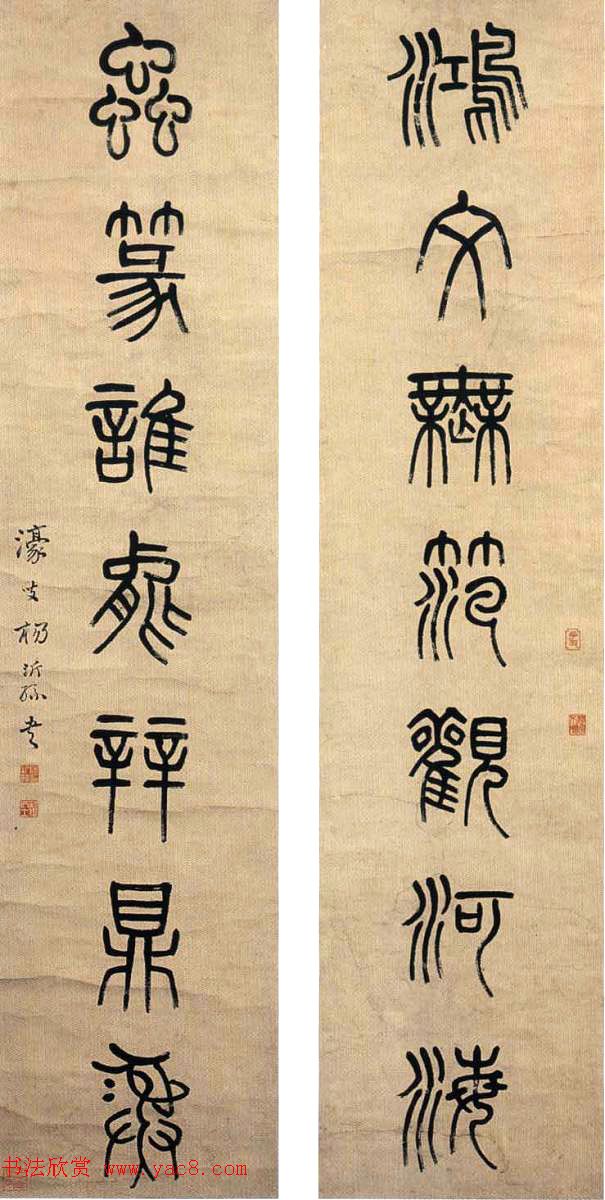 鴻文無笵觀河海
蟲篆誰能辡鼎彝
濠叟楊沂孫
书法欣赏 www.yac8.com